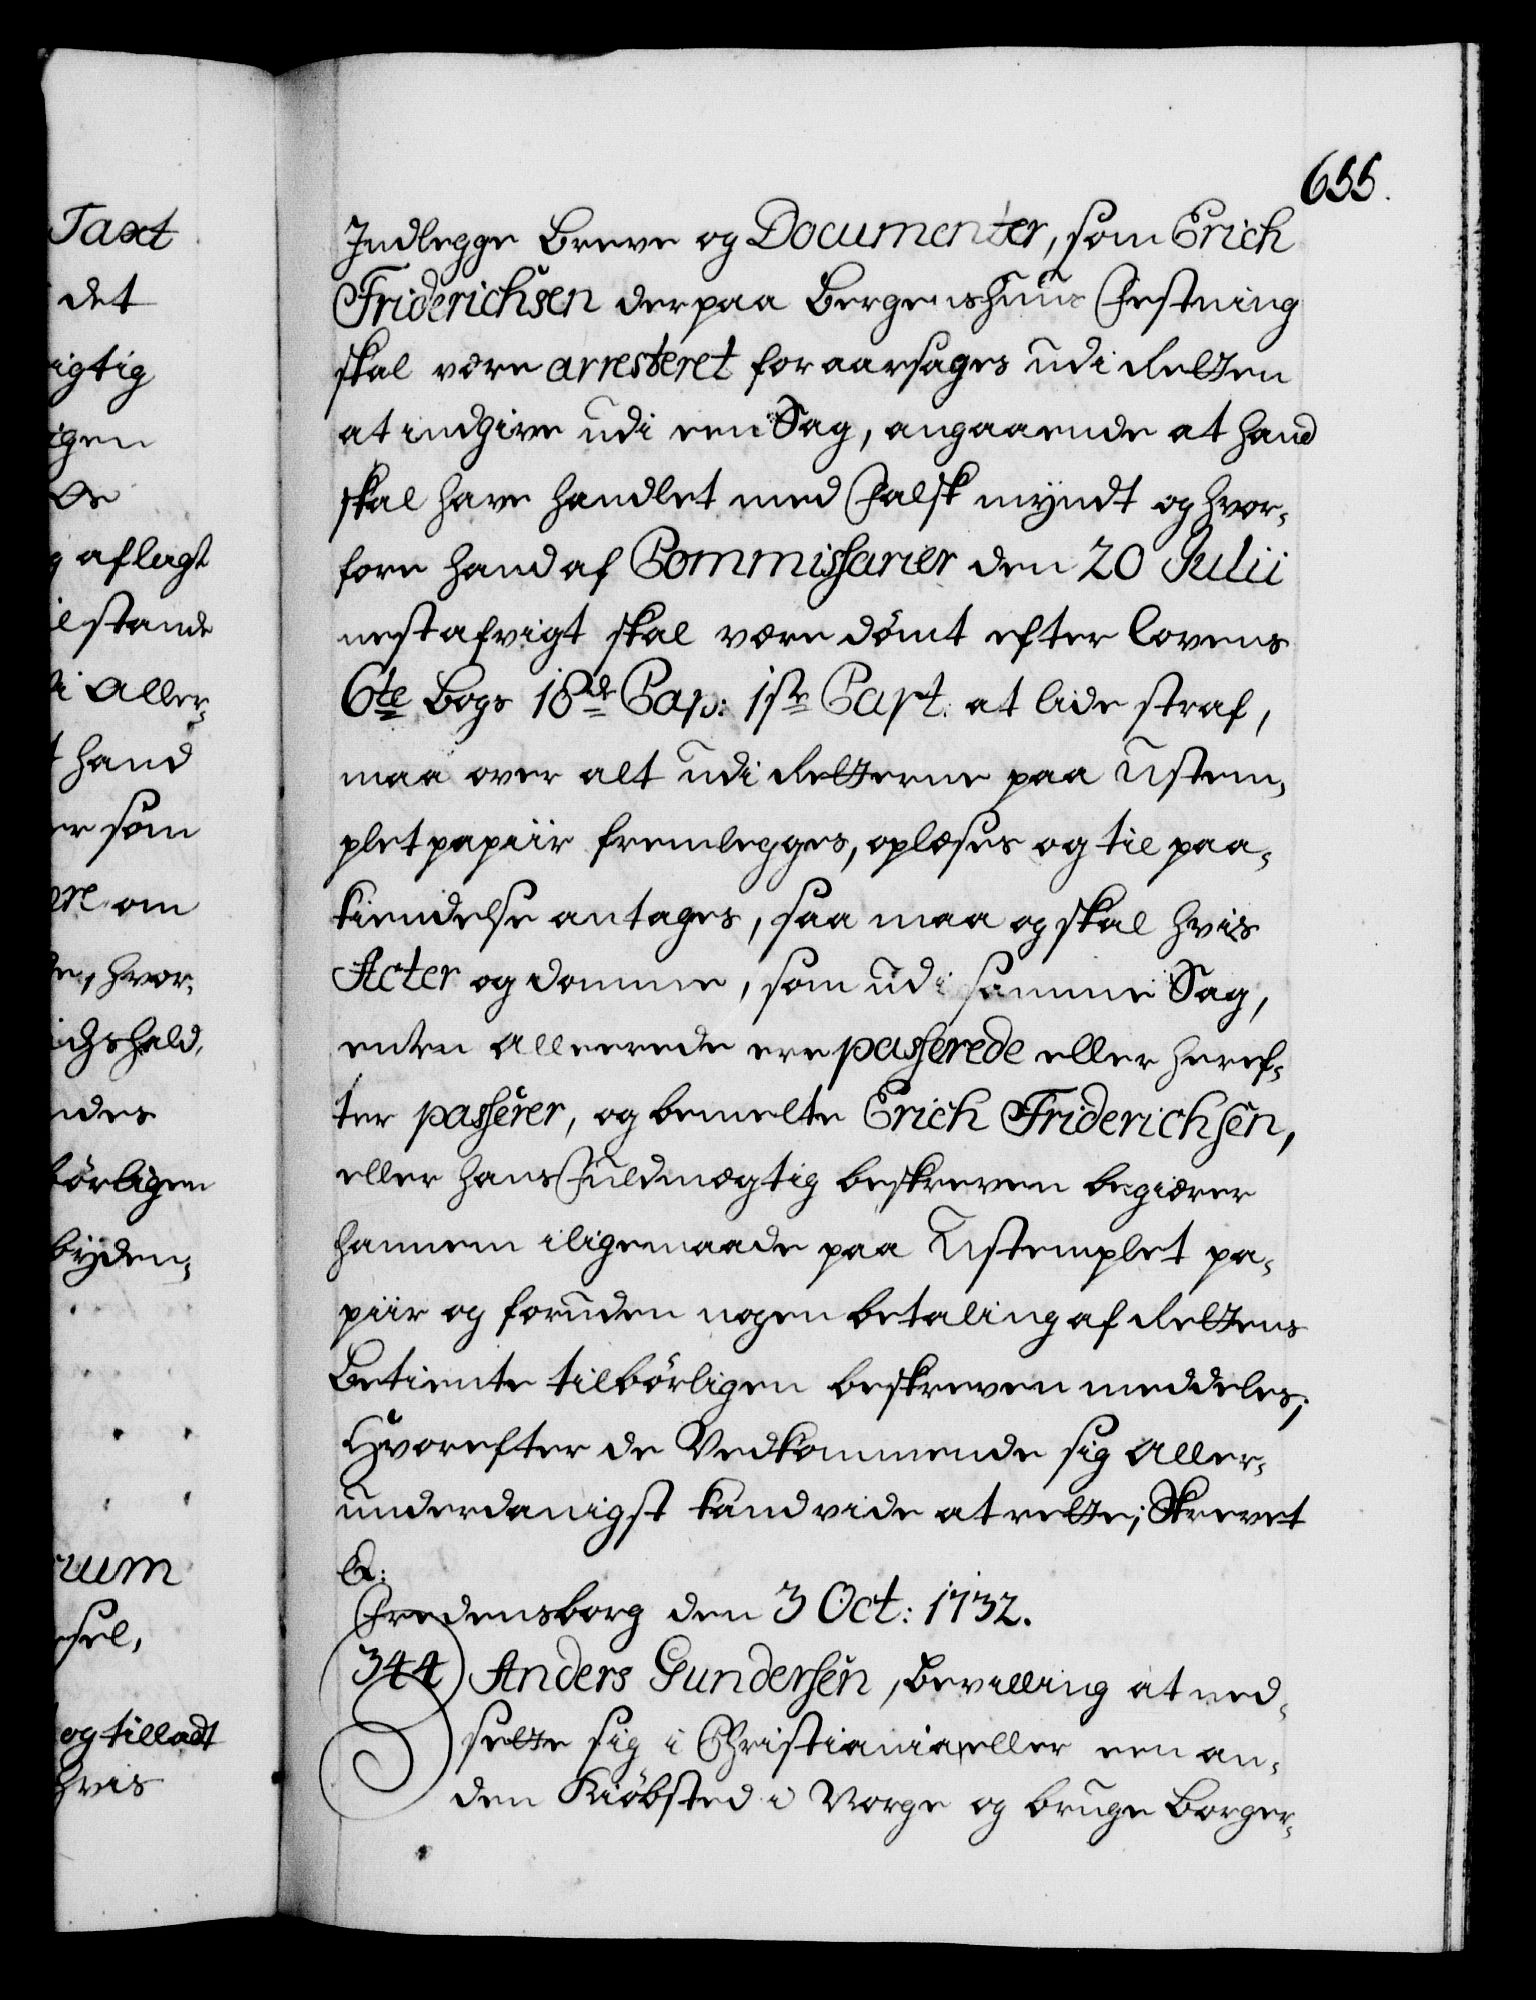 655.
Taxt
det
igtig
igen
De
g aflagt
ilstande
Aller-
t hand
er som
ere om
de, hvor-
ichshald,
ndes
börligen
bÿden-
rum
sel,
og tilladt
hvis
Indlegge Breve og Documenter, som Erich
Friderichsen der paa Bergenshuus Festning
skal være arresteret foraarsages udi Retten
at indgive udi een Sag, angaaende at hand
skal have handlet med Falsk mÿndt og hvor-
fore hand af Commissarier den 20 Julii
nestafvigt skal være dömt efter Lovens
6te Bogs 18de Cap: 1ste Art: at lide straf,
maa over alt udi Retterne paa Ustem-
plet papiir fremlegges, oplæses og til paa-
kiendelse antages, saa maa og skal hvis
Acter og domme, som udi samme Sag,
enten allereede ere passerede eller heref-
ter passerer, og bemelte Erich Friderichsen,
eller hans Fuldmægtig beskreven begiærer
hannem iligemaade paa Ustemplet pa-
piir og foruden nogen betaling af Rettens
Betiente tilbörligen beskreven meddeles;
Hvorefter de Vedkommende sig aller-
underdanigst kand vide at rette; Skrevet
&:
Fredensborg den 3 Oct: 1732.
344) Anders Gundersen, Bevilling at ned-
sette sig i Christiania eller een an-
den Kiöbsted i Norge og bruge Borger-